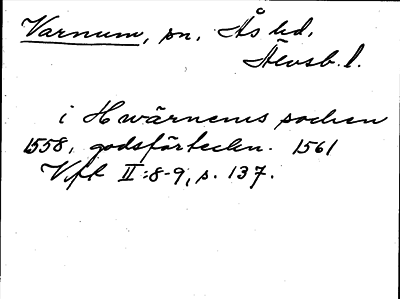 Varnum, sn. Ås hd.
Älvsb. l.
i Hwärnems sochen
1558, godsförteckn. 1561
Vft II:8-9, s. 137.